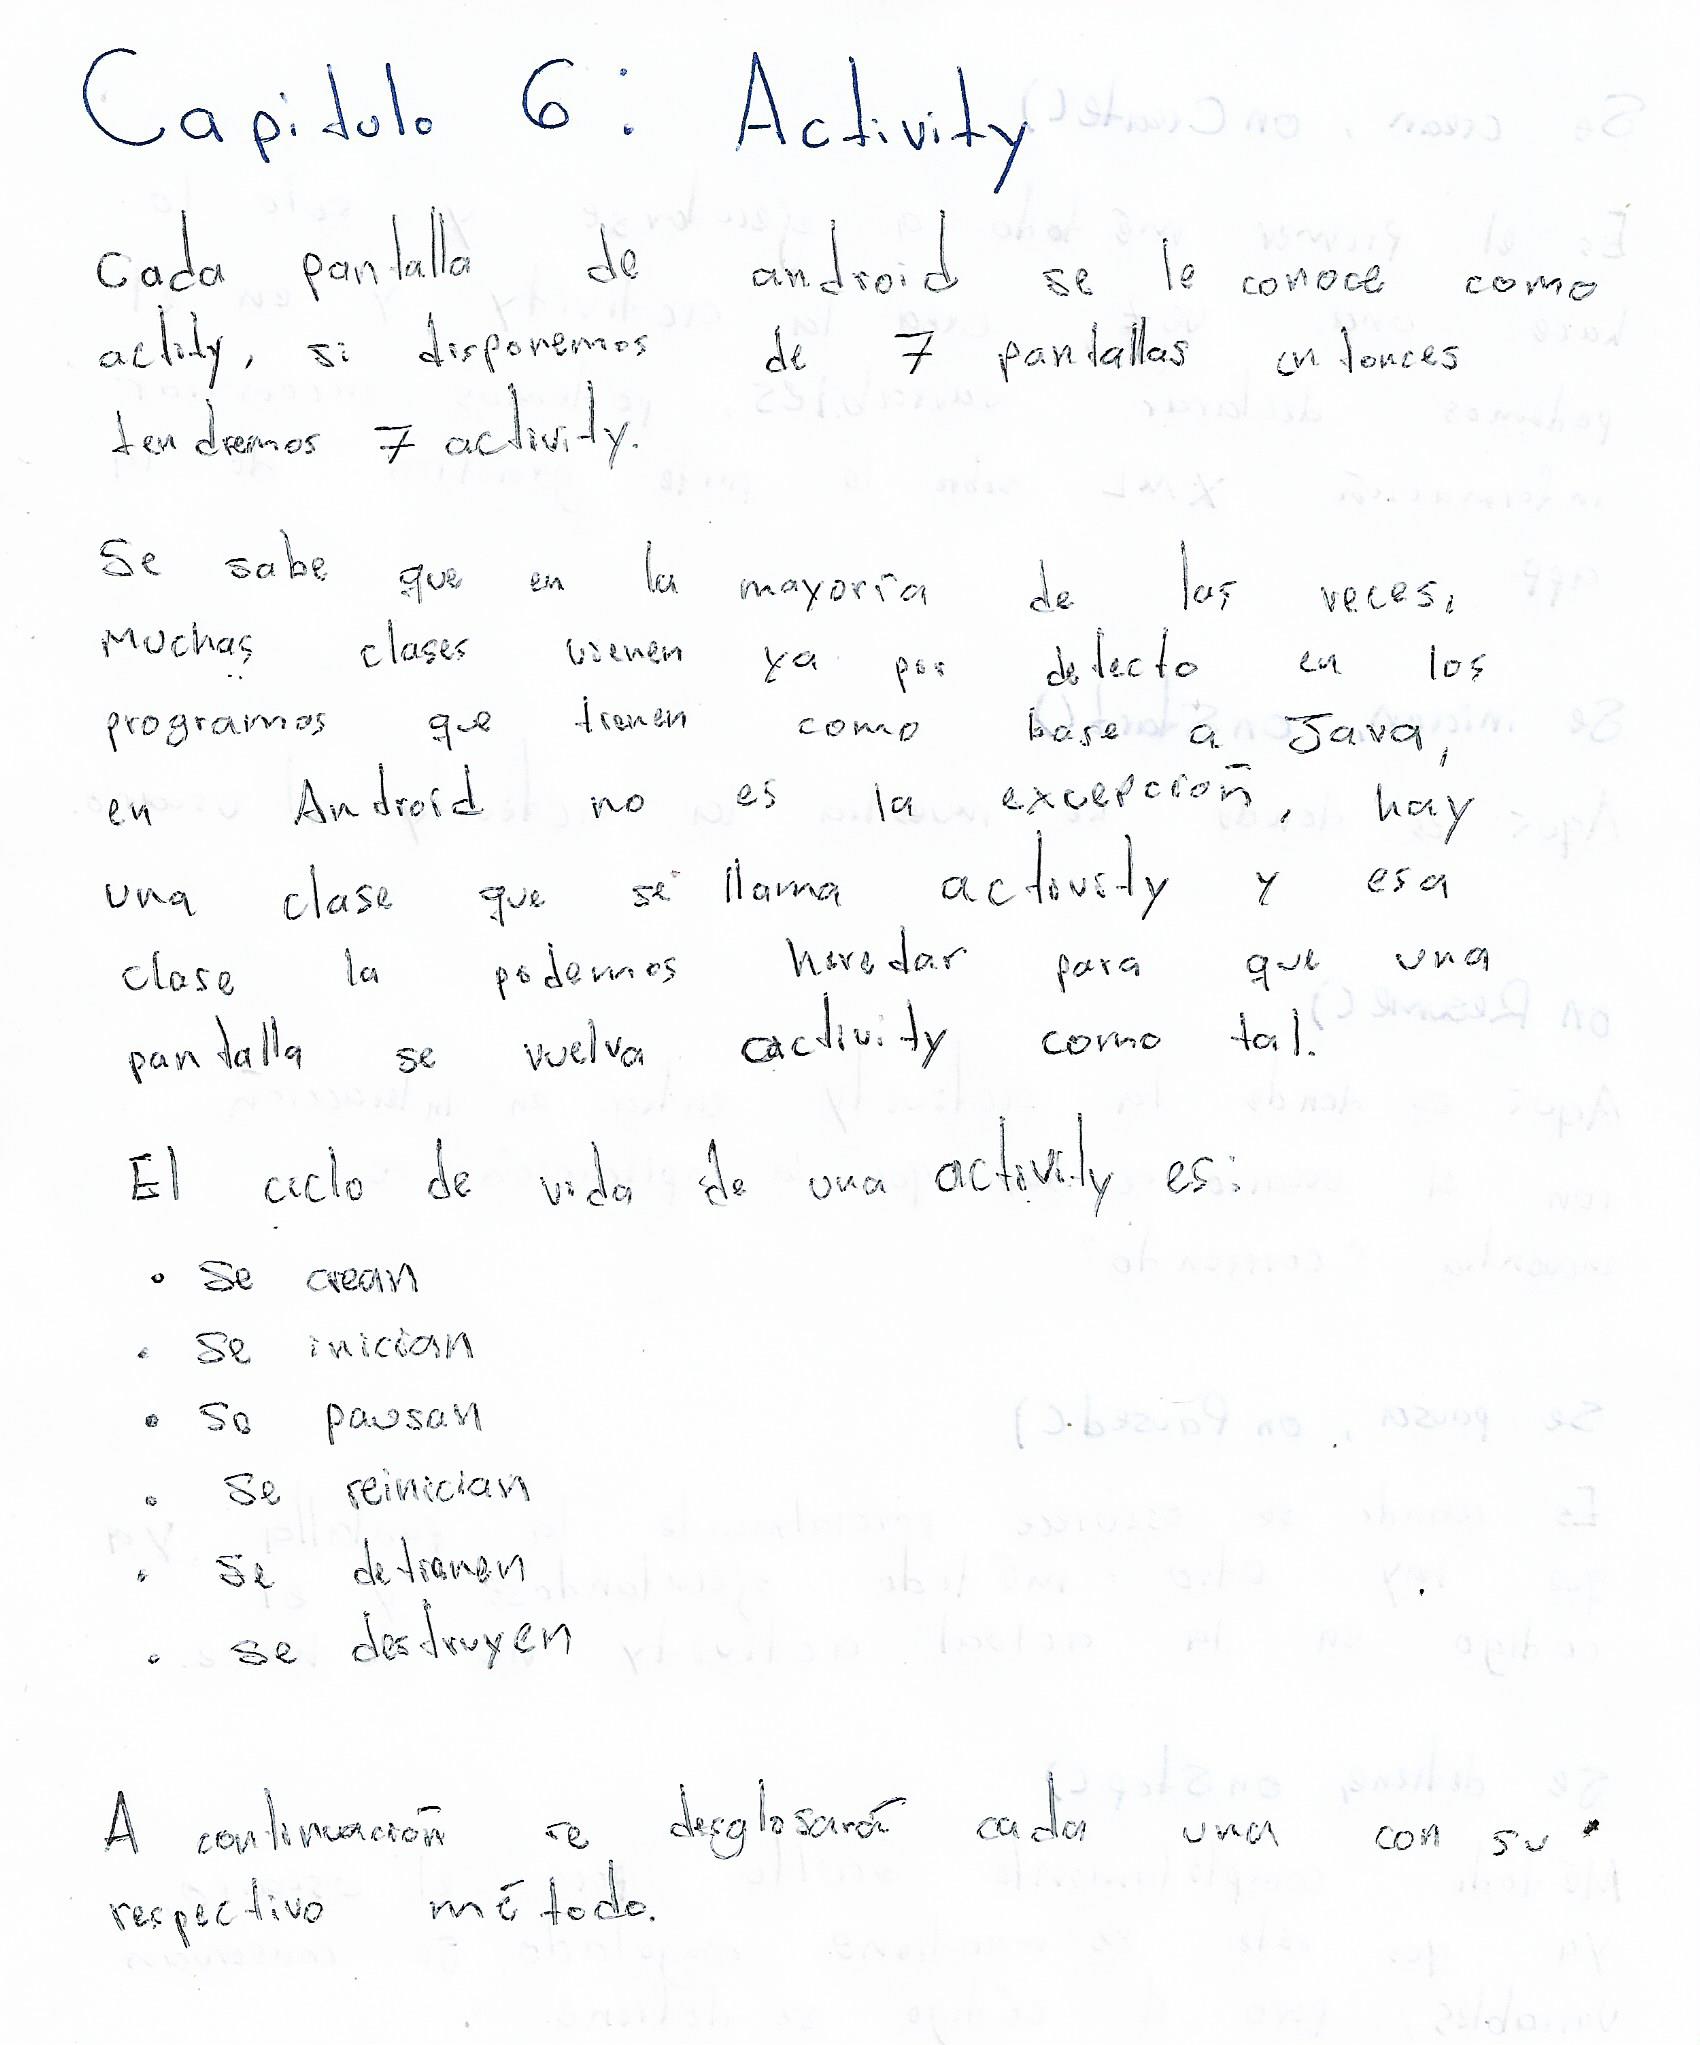 Capitulo 6: Activity
Cada pantalla de android se le conoce como
actity, si disponemos de 7 pantallas entonces
tendremos 7 activity.
Se sabe que en la mayoría de las veces,
Muchas clases vienen ya por defecto en los
programas que tienen como base a Java,
en Android no es la excepción, hay
una clase que se llama activity y esa
clase la podemos heredar para que una
pantalla se vuelva activity como tal.
El ciclo de vida de una activity es:
• Se crean
• Se inician
• Se pausan
• Se reinician
• Se detienen
• Se destruyen
A continuación se desglosará cada una con su
respectivo método.